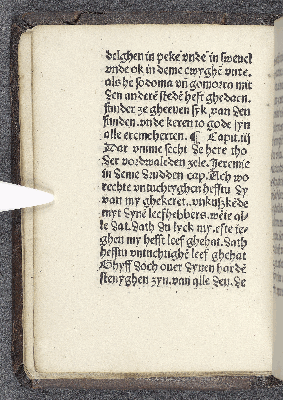 delghen in peke vnde in sweuel
vnde ok in deme ewyghē vure.
als he sodoma vn̄ gomorra mit
den anderē stedē heft ghedaen.
sunder ze gheeuen syk van den
sunden. vnde keren to gode syn
alle ercheherten. ¶ Capit. iij
Dar vmme secht de here tho
der vordwaleden zele. Jeremie
in deme drudden cap. Och wo
rechte vntuchtyghen hefftu dy
van my ghekeret. vnkuszkēde
myt dynē leefhebbers. wēte al=
le dat. dath du lyck my. efte ie=
ghen my hefft leef ghehat. dath
hefftu vntuchtighē leef ghehat
Ghyff doch ouer dynen hardē
stenyghen zyn. van alle den. de